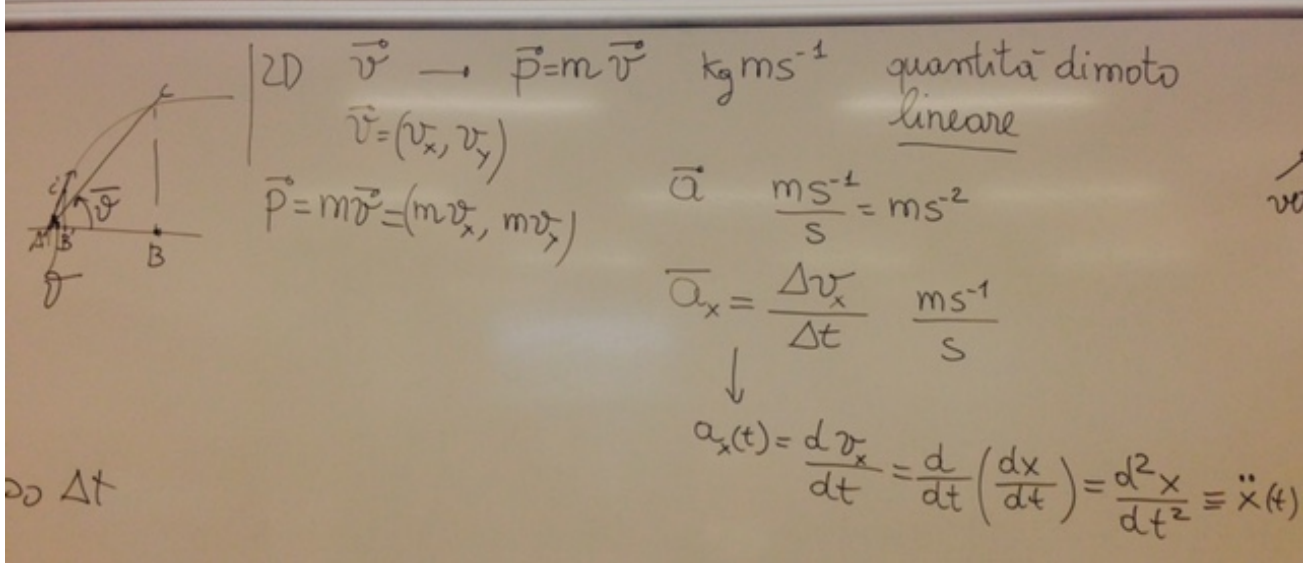 2D v⃗ → p⃗=mv⃗ kgms⁻¹ quantità di moto
lineare
v⃗=(vₓ, v_y)
p⃗=mv⃗=(mvₓ, mv_y)
a⃗ ms⁻¹/s = ms⁻²
a̅ₓ = Δvₓ/Δt ms⁻¹/s
↓
aₓ(t)= dvₓ/dt = d/dt (dx/dt) = d²x/dt² ≡ ẍ(t)
C
C'
v̅
A B' B
v
Δt